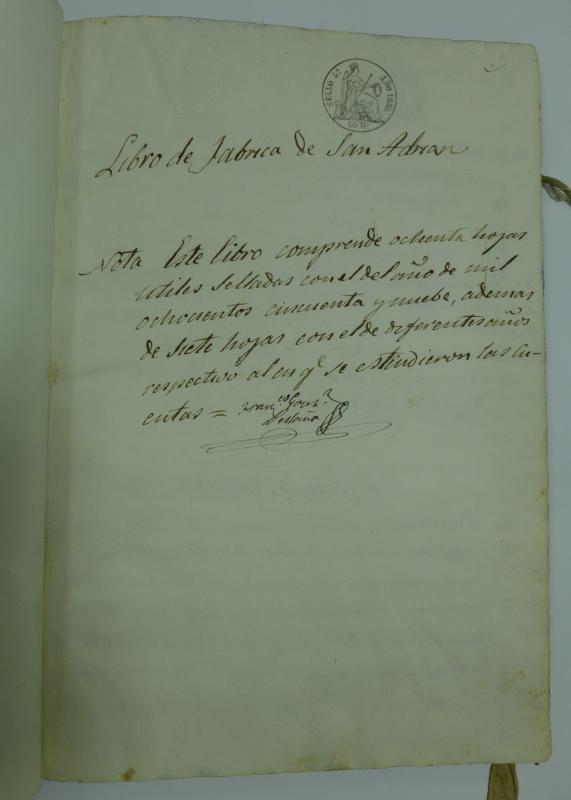 SELLO 4º AÑO 1859.
40 Ms
Libro de Fabrica de San Adrian
Nota Este libro comprende ochenta hojas
utiles selladas con el del año de mil
ochocientos cincuenta y nuebe, ademas
de siete hojas con el de diferentes años
respectivo al en q.e se estindieron las cu-
entas = Fran.co Gonz.z